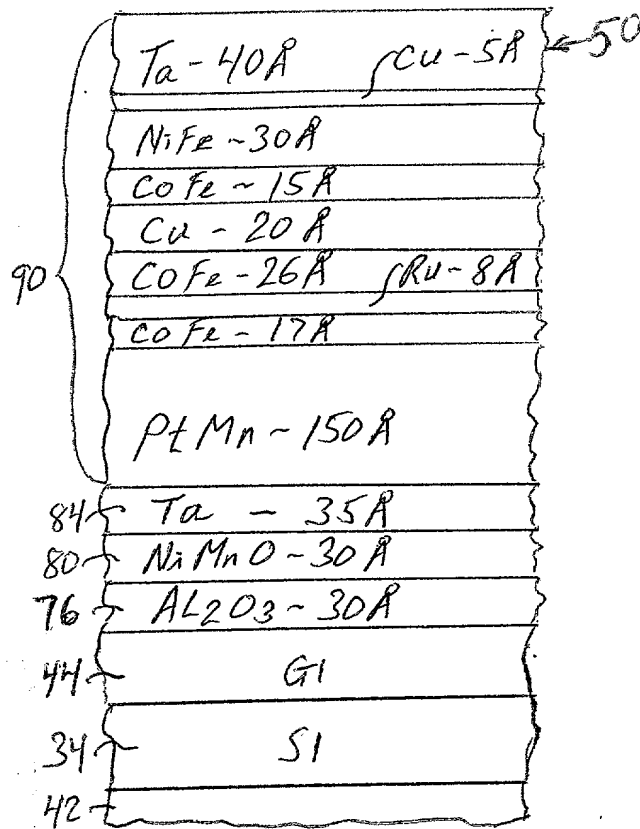 50
Ta - 40Å Cu - 5Å
NiFe - 30Å
CoFe - 15Å
Cu - 20Å
90 CoFe - 26Å Ru - 8Å
CoFe - 17Å
PtMn - 150Å
84 Ta - 35Å
80 NiMnO - 30Å
76 AL2O3 - 30Å
44 G1
34 S1
42